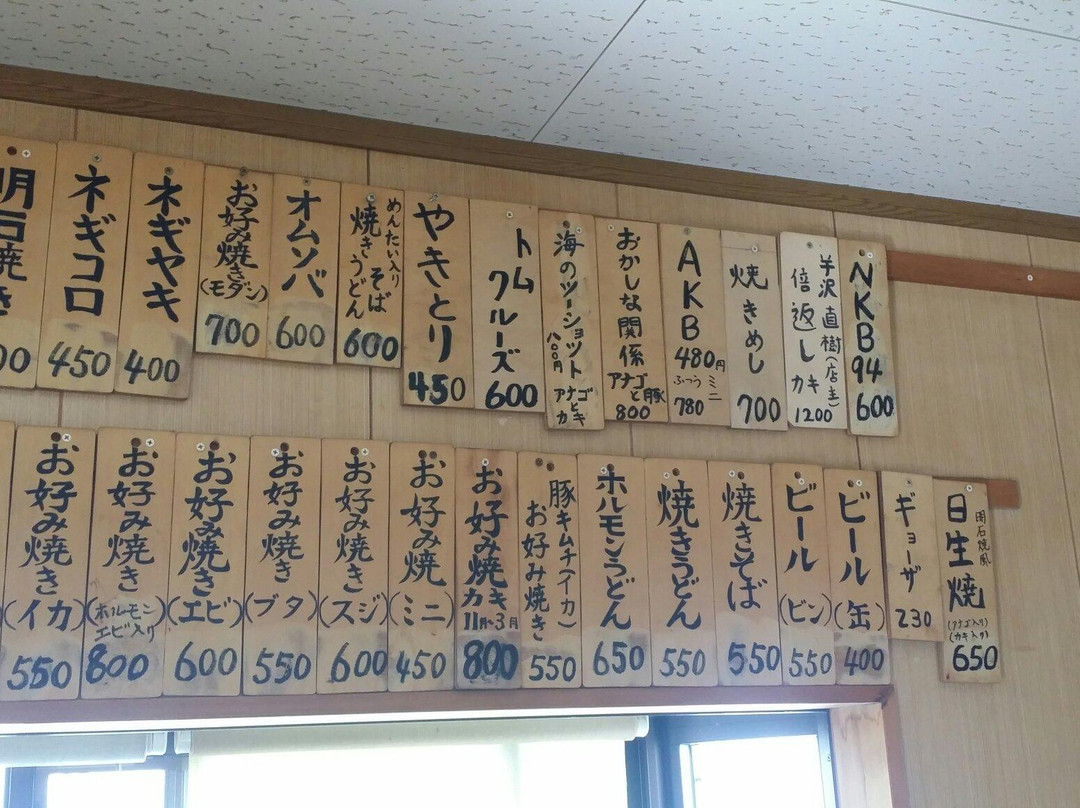 明石焼き
00
ネギコロ
450
ネギヤキ
400
お好み焼き
(モダン)
700
オムソバ
600
めんたい入り
焼きそば
うどん
600
やきとり
450
トム
クルーズ
600
海のツーショット
八〇〇円
アナゴとカキ
おかしな関係
アナゴと豚
800
AKB
480円
ふつう ミニ
780
焼きめし
700
半沢直樹(店主)
倍返し
カキ
1200
NKB
94
600
お好み焼き
(イカ)
550
お好み焼き
(ホルモン
エビ入り)
800
お好み焼き
(エビ)
600
お好み焼き
(ブタ)
550
お好み焼き
(スジ)
600
お好み焼
(ミニ)
450
お好み焼
カキ
11月~3月
800
豚キムチ(イカ)
お好み焼き
550
ホルモンうどん
650
焼きうどん
550
焼きそば
550
ビール
(ビン)
550
ビール
(缶)
400
ギョーザ
230
日生焼
明石焼風
(アナゴ入り)
(カキ入り)
650